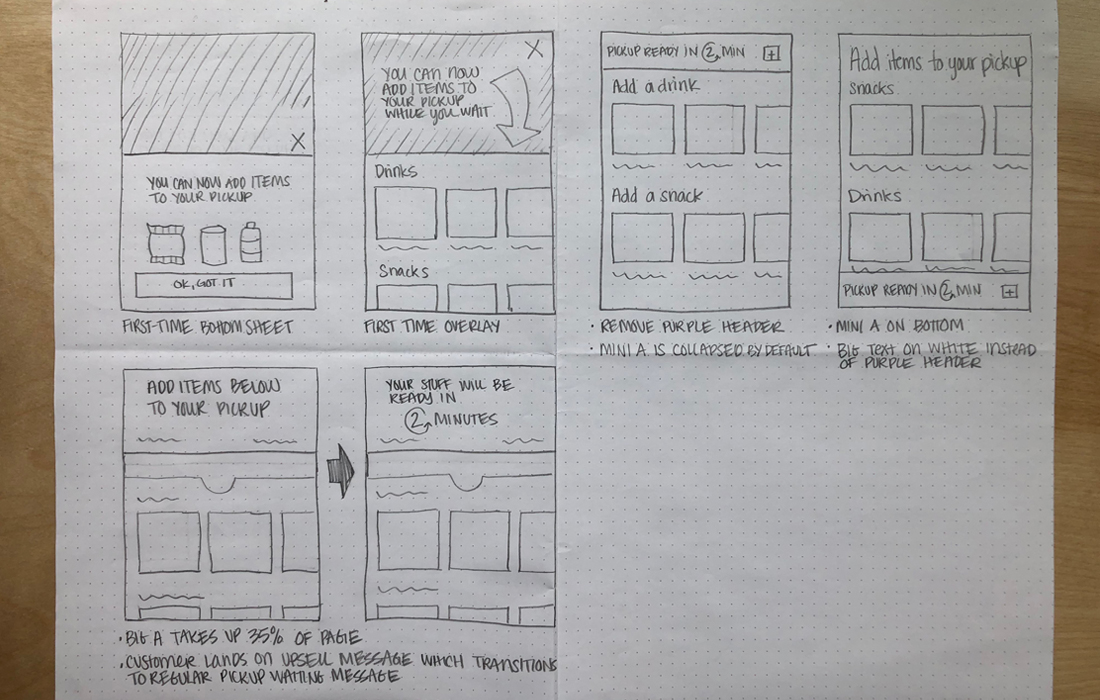 X
YOU CAN NOW ADD ITEMS
TO YOUR PICKUP
OK, GOT IT
FIRST-TIME BOTTOM SHEET
X
YOU CAN NOW
ADD ITEMS TO
YOUR PICKUP
WHILE YOU WAIT
Drinks
Snacks
FIRST TIME OVERLAY
PICKUP READY IN 2 MIN +
Add a drink
Add a snack
• REMOVE PURPLE HEADER
• MINI A IS COLLAPSED BY DEFAULT
Add items to your pickup
Snacks
Drinks
PICKUP READY IN 2 MIN +
• MINI A ON BOTTOM
• BIG TEXT ON WHITE INSTEAD
OF PURPLE HEADER
ADD ITEMS BELOW
TO YOUR PICKUP
YOUR STUFF WILL BE
READY IN
2 MINUTES
• BIG A TAKES UP 35% OF PAGE
• CUSTOMER LANDS ON UPSELL MESSAGE WHICH TRANSITIONS
TO REGULAR PICKUP WAITING MESSAGE